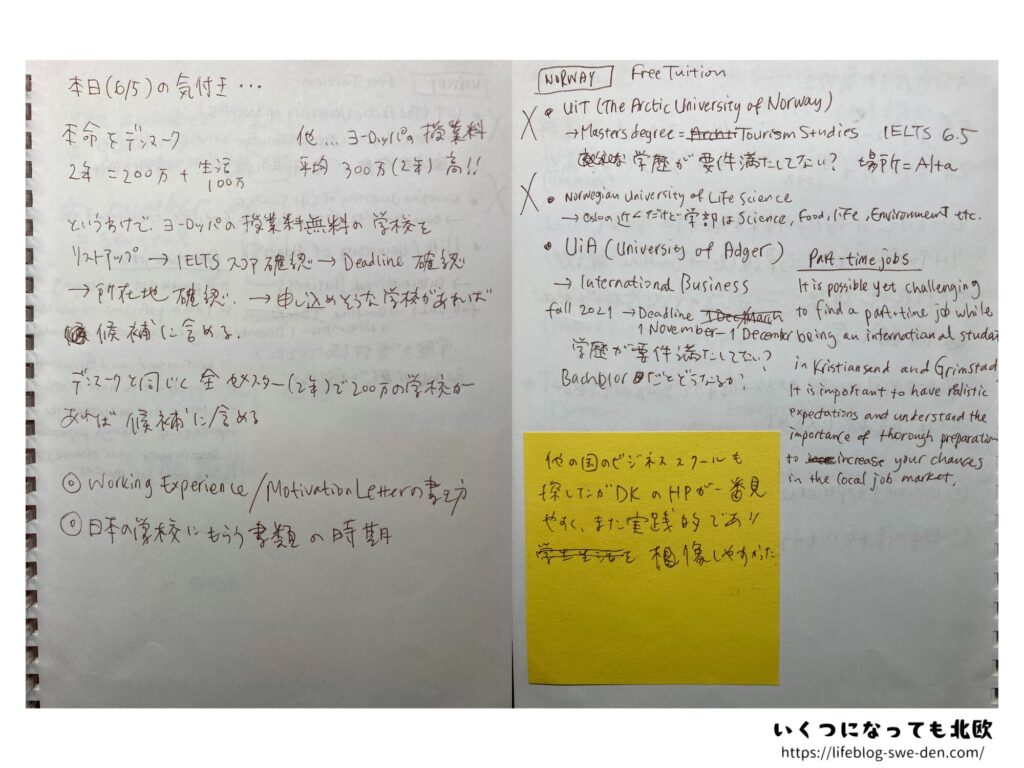 本日(6/5)の気付き…
本命をデンマーク
2年=200万+生活
100万
他…ヨーロッパの授業料
平均 300万(2年)高!!
というわけで、ヨーロッパの授業料無料の学校を
リストアップ → IELTSスコア確認 → Deadline 確認
→ 所在地 確認. → 申し込めそうな学校があれば
候補に含める.
デンマークと同じく 全セメスター(2年)で200万の学校が
あれば 候補に含める
◎ Working Experience/Motivation Letterの書き方
◎ 日本の学校にもらう書類の時期
NORWAY Free Tuition
X • UiT (The Arctic University of Norway)
→ Masters degree = Tourism Studies IELTS 6.5
学歴が要件満たしてない? 場所=Alta
X • Norwegian University of Life Science
→ Osloの近くだけど学部は Science, Food, Life, Environment etc.
• UiA (University of Adger)
→ International Business
Fall 2021 → Deadline 1 Dec/March
1 November - 1 December
学歴が要件満たしてない?
Bachlorごとどうなるか?
Part-time jobs
It is possible yet challenging
to find a part-time job while
being an international student
in Kristiansand and Grimstad
It is important to have realistic
expectations and understand the
importance of thorough preparation
to increase your chances
in the local job market.
他の国のビジネススクールも
探したがDKのHPが一番見
やすく、また実践的であり
学生生活を 想像しやすかった
いくつになっても北欧
https://lifeblog-swe-den.com/